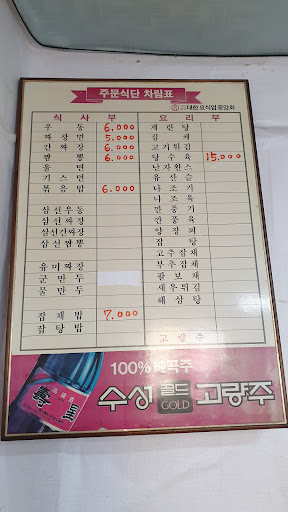 주문식단 차림표
대한요식업중앙회
식사부
요리부
우동 6.000
계란탕
짜장면 5.000
잡채
간짜장 6.000
고기튀김
짬뽕 6.000
탕수육 15.000
울면
난자완스
기스면
유산슬
볶음밥 6.000
라조기
라조육
삼선우동
깐풍기
삼선짜장
깐풍육
삼선간짜장
양장피
삼선짬뽕
잡탕
고추잡채
유미짜장
부추잡채
군만두
팔보채
물만두
새우튀김
해삼탕
잡채밥 7.000
잡탕밥
고량주
100% 純곡주
수성 골드 GOLD 고량주